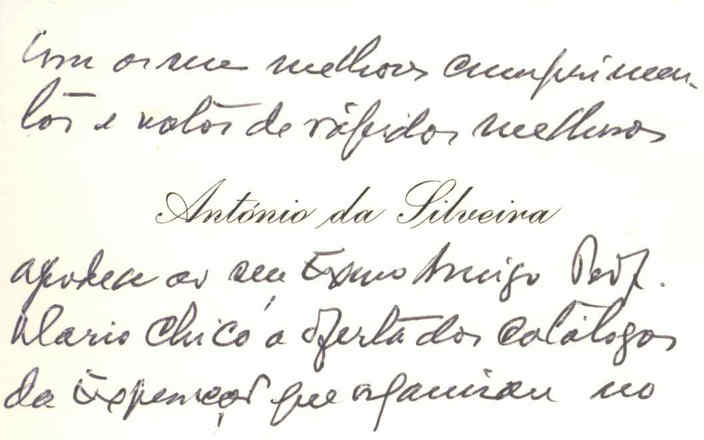 Com os meus melhores cumprimen-
tos e votos de rápidas melhoras
António da Silveira
agradece ao seu Exmo Amigo Prof.
Mario Chicó a oferta dos catálogos
da Exposição que organizou no